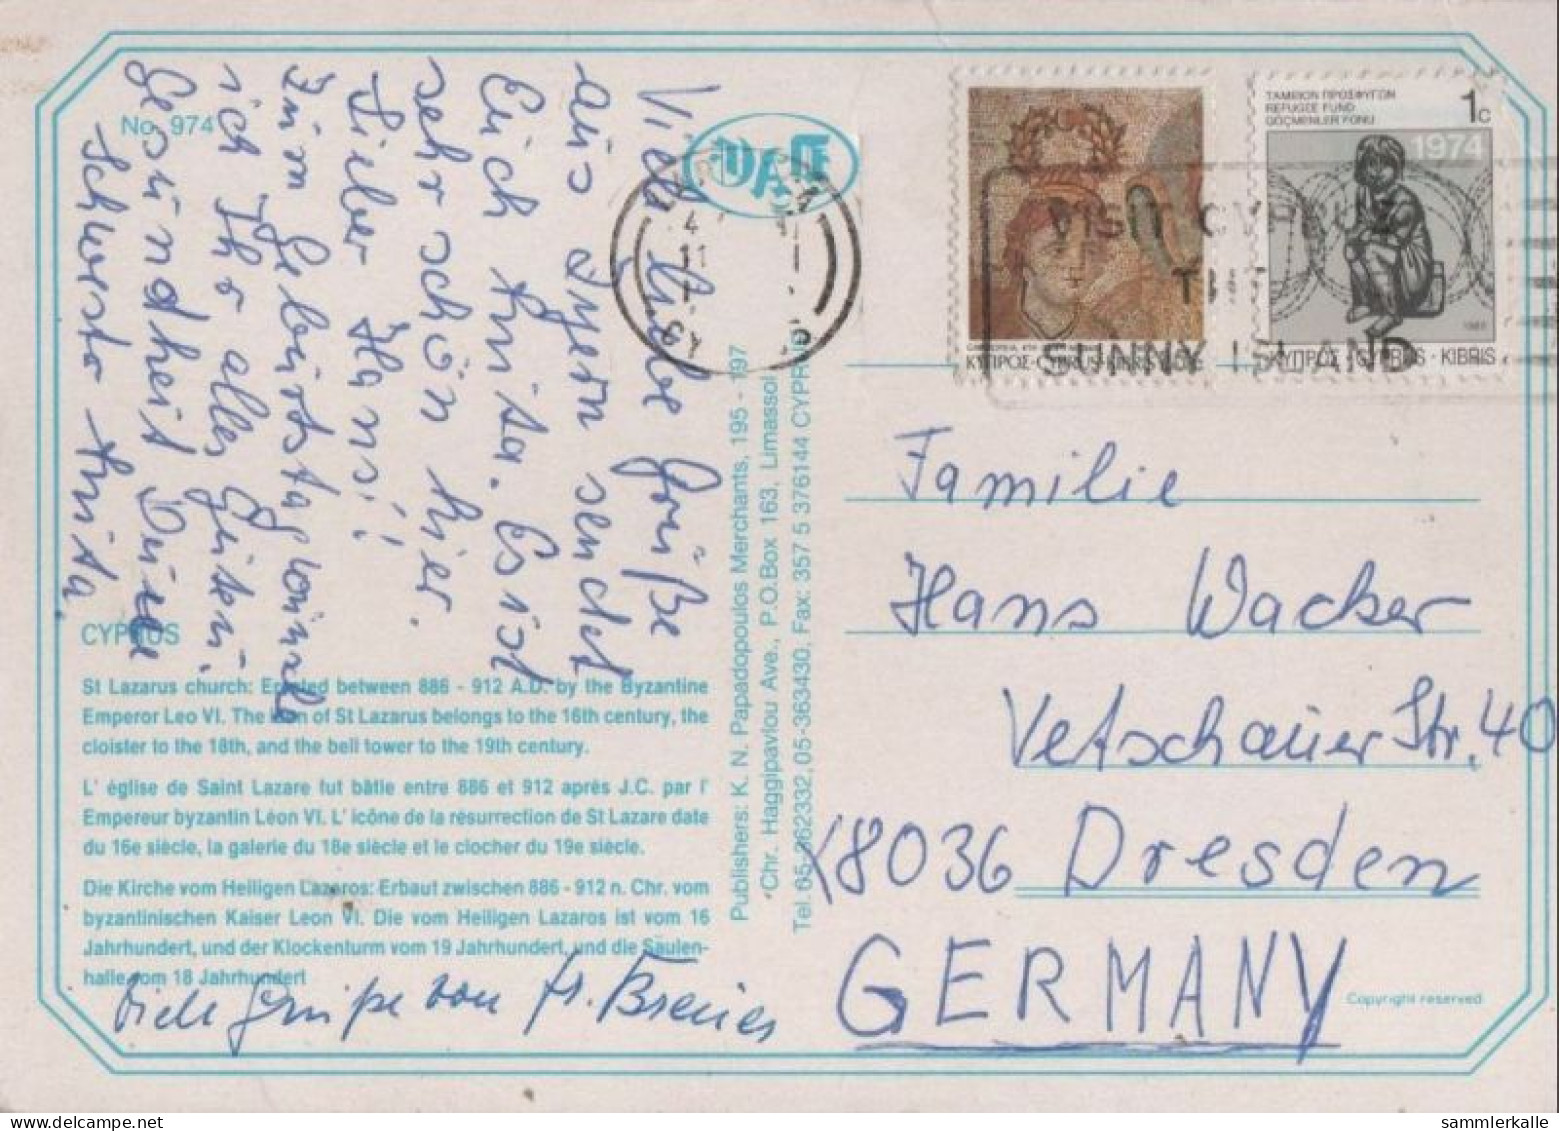 No. 974
Viele liebe Grüße
aus Zypern sendet
Euch Krista. Es ist
sehr schön hier.
Lieber Hans!
Zum Geburtstag wünsche
ich Ihr alles Gute u.
Gesundheit Deine
Schwester Krista.
CYPRUS
St Lazarus church: Erected between 886 - 912 A.D. by the Byzantine
Emperor Leo VI. The icon of St Lazarus belongs to the 16th century, the
cloister to the 18th, and the bell tower to the 19th century.
L' église de Saint Lazare fut bâtie entre 886 et 912 après J.C. par l'
Empereur byzantin Léon VI. L' icône de la résurrection de St Lazare date
du 16e siècle, la galerie du 18e siècle et le clocher du 19e siècle.
Die Kirche vom Heiligen Lazaros: Erbaut zwischen 886 - 912 n. Chr. vom
byzantinischen Kaiser Leon VI. Die vom Heiligen Lazaros ist vom 16
Jahrhundert, und der Klockenturm vom 19 Jahrhundert, und die Säulen-
halle vom 18 Jahrhundert
Viele Grüße von
Publishers: K. N. Papadopoulos Merchants, 195 - 197
Chr. Haggipavlou Ave., P.O.Box 163, Limassol
Tel. 05-362332, 05-363430, Fax: 357 5 376144 CYPRUS
ΚΥΠΡΟΣ·CYPRUS·KIBRIS
ΤΑΜΕΙΟΝ ΠΡΟΣΦΥΓΩΝ
REFUGEE FUND
GÖÇMENLER FONU
1c
1974
ΚΥΠΡΟΣ·CYPRUS·KIBRIS
VISIT CYPRUS
THE
SUNNY ISLAND
Familie
Hans Wacker
Vetschauer Str. 40
18036 Dresden
GERMANY
Copyright reserved
sammlerkalle